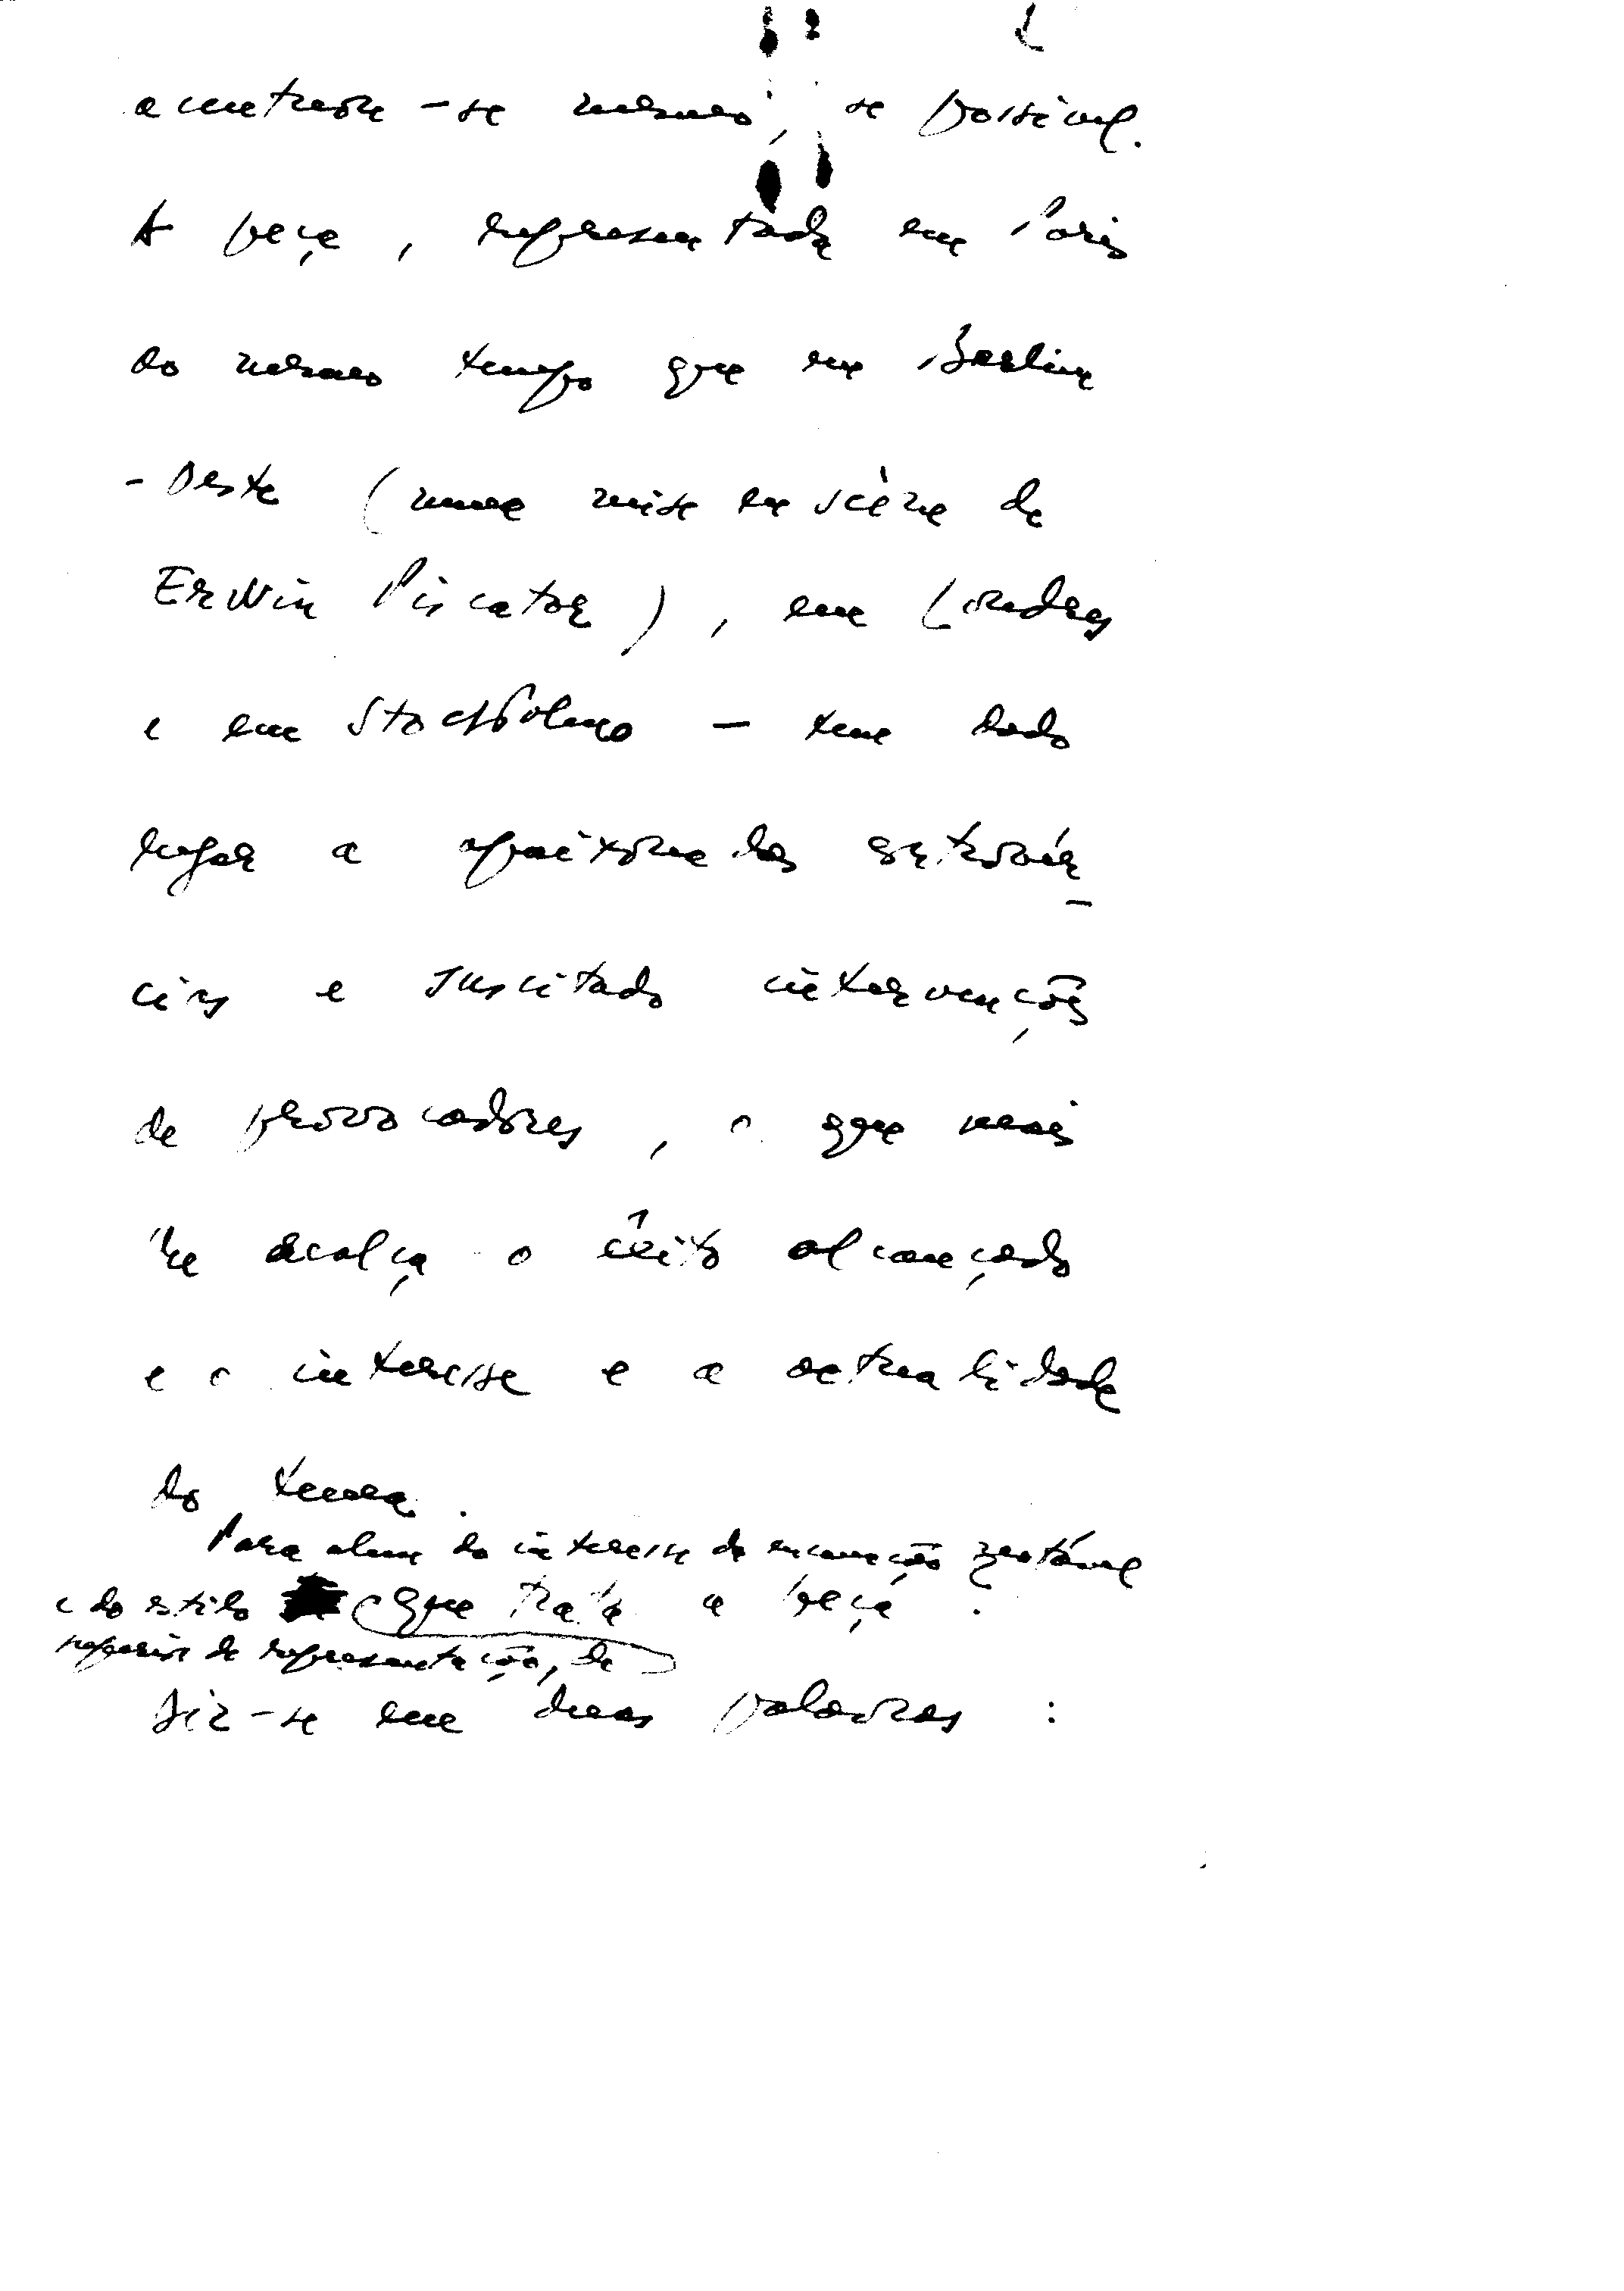 acentuar-se mesmo, se possível.
A peça, representada em Paris
ao mesmo tempo que em Berlim
-Oeste (numa mise en scène de
Erwin Piscator), em Londres
e em Stockholmo - tem dado
lugar a apaixonadas
cias e suscitado intervenções
de provocadores, o que mais
realça o êxito alcançado
e o interesse e a actualidade
do tema.
Para alem do interesse da encenação
e do estilo que trata a peça.
de representação, de
diz-se em duas palavras :